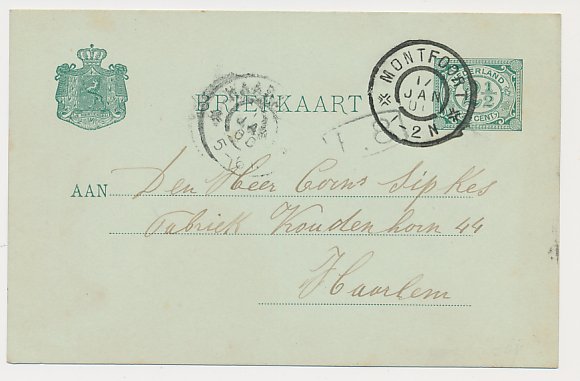 BRIEFKAART
MONTFOORT
17
JAN
01
2 N
NEDERLAND
2½
CENT
HAARL
JAN
AAN Den Heer Corns Sipkes
Fabriek Koudenhorn 44
Haarlem